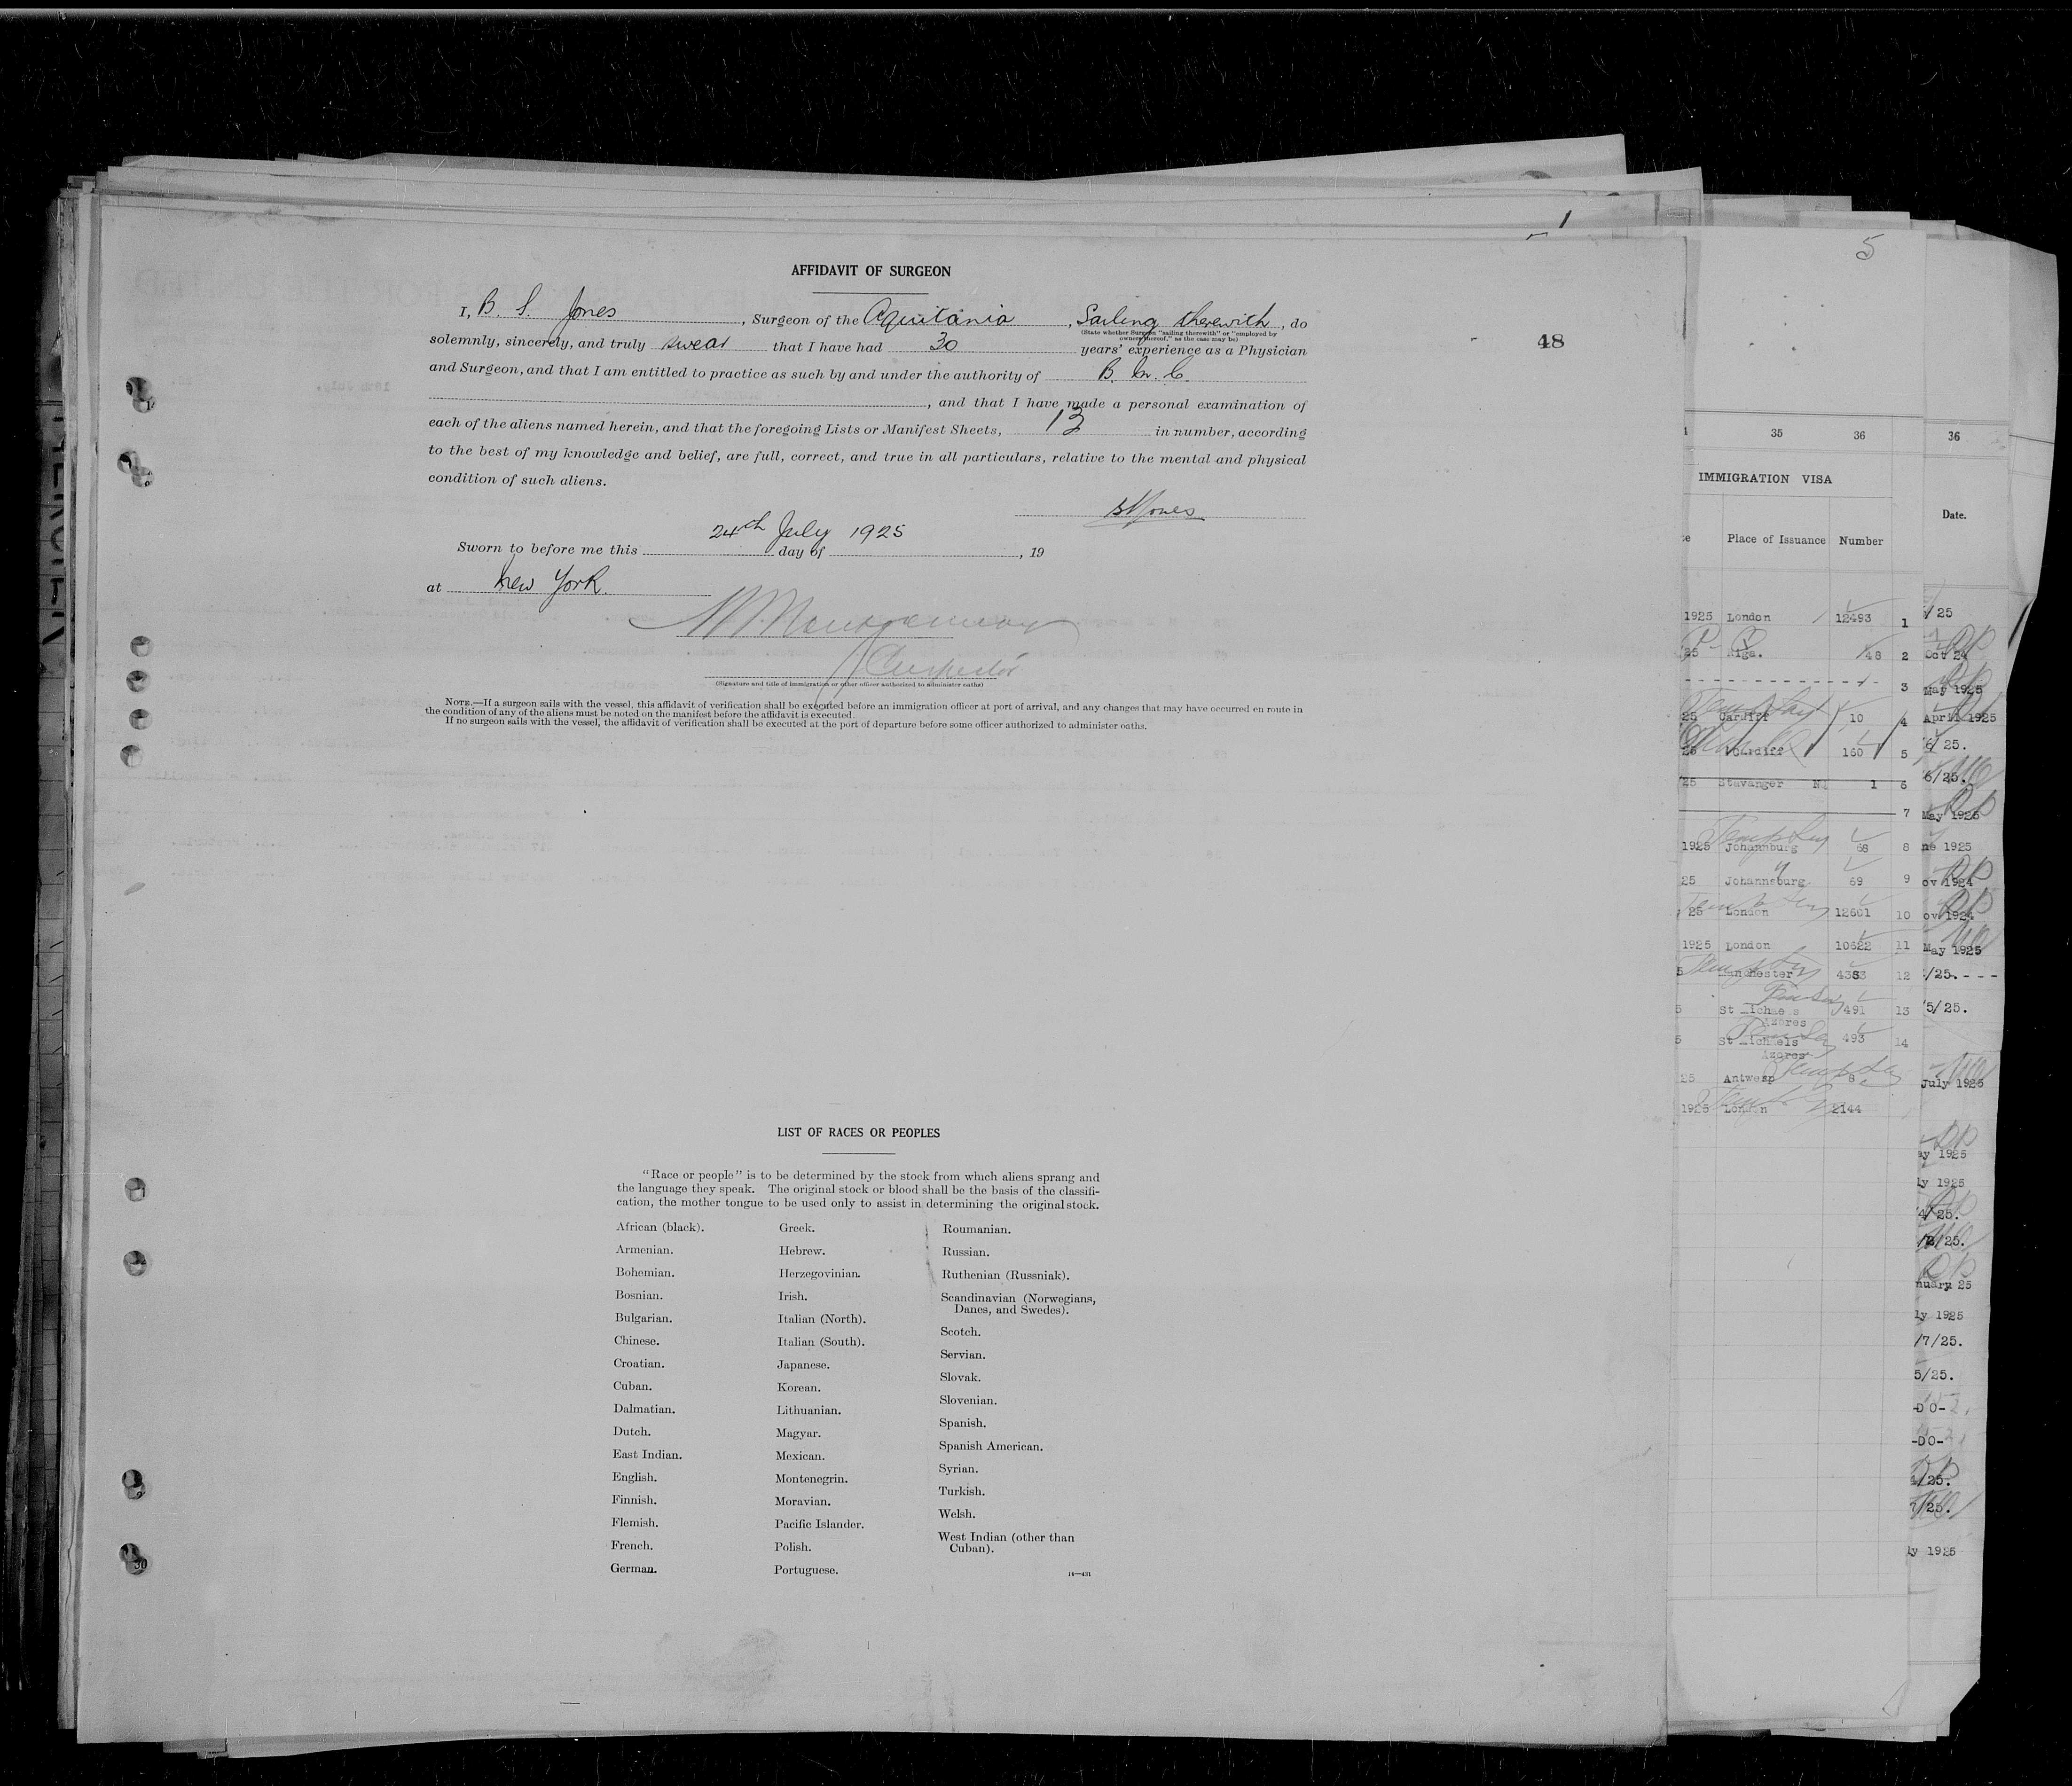 1
5
48
AFFIDAVIT OF SURGEON
I, B. S. Jones, Surgeon of the Aquitania, Sailing therewith, do
(State whether Surgeon "sailing therewith" or "employed by
owners thereof," as the case may be)
solemnly, sincerely, and truly swear that I have had 30 years' experience as a Physician
and Surgeon, and that I am entitled to practice as such by and under the authority of B. M. C.
, and that I have made a personal examination of
each of the aliens named herein, and that the foregoing Lists or Manifest Sheets, 13 in number, according
to the best of my knowledge and belief, are full, correct, and true in all particulars, relative to the mental and physical
condition of such aliens.
BSJones
Sworn to before me this 24th July 1925 day of , 19
at New York.
Inspector
(Signature and title of immigration or other officer authorized to administer oaths)
NOTE.—If a surgeon sails with the vessel, this affidavit of verification shall be executed before an immigration officer at port of arrival, and any changes that may have occurred en route in
the condition of any of the aliens must be noted on the manifest before the affidavit is executed.
If no surgeon sails with the vessel, the affidavit of verification shall be executed at the port of departure before some officer authorized to administer oaths.
LIST OF RACES OR PEOPLES
"Race or people" is to be determined by the stock from which aliens sprang and
the language they speak. The original stock or blood shall be the basis of the classifi-
cation, the mother tongue to be used only to assist in determining the original stock.
African (black).
Armenian.
Bohemian.
Bosnian.
Bulgarian.
Chinese.
Croatian.
Cuban.
Dalmatian.
Dutch.
East Indian.
English.
Finnish.
Flemish.
French.
German.
Greek.
Hebrew.
Herzegovinian.
Irish.
Italian (North).
Italian (South).
Japanese.
Korean.
Lithuanian.
Magyar.
Mexican.
Montenegrin.
Moravian.
Pacific Islander.
Polish.
Portuguese.
Roumanian.
Russian.
Ruthenian (Russniak).
Scandinavian (Norwegians,
Danes, and Swedes).
Scotch.
Servian.
Slovak.
Slovenian.
Spanish.
Spanish American.
Syrian.
Turkish.
Welsh.
West Indian (other than
Cuban).
14—431
35 36
IMMIGRATION VISA
Place of Issuance Number
1925 London 12493 1
25 Riga. 48 2
3
25 Cardiff 10 4
25 Cardiff 160 5
25 Stavanger 1 6
7
1925 Johannburg 68 8
25 Johannsburg 69 9
25 London 12601 10
1925 London 10622 11
5 Manchester 4383 12
5 St Michaels 491 13
Azores
5 St Michaels 493 14
Azores
25 Antwerp 8
1925 London 2144
36
Date.
/25
Oct 24
May 1925
April 1925
6/25.
6/25.
May 1925
ne 1925
ov 1924
ov 1924
May 1925
/25.---
5/25.
July 1925
ay 1925
ly 1925
4/25.
/25.
nuary 25
ly 1925
/7/25.
5/25.
-DO-
-DO-
4/25.
7/25.
ly 1925